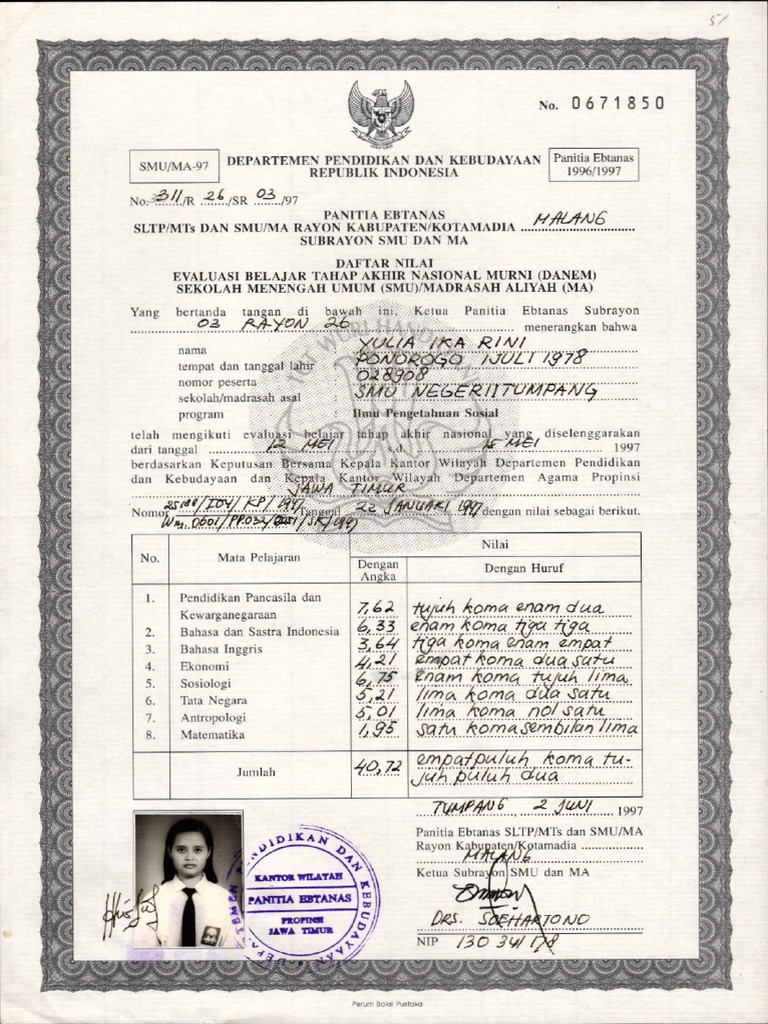 5/
No. 0671850
SMU/MA-97
DEPARTEMEN PENDIDIKAN DAN KEBUDAYAAN
REPUBLIK INDONESIA
Panitia Ebtanas
1996/1997
No. 311/R 26/SR 03/97
PANITIA EBTANAS
SLTP/MTs DAN SMU/MA RAYON KABUPATEN/KOTAMADIA MALANG
SUBRAYON SMU DAN MA
DAFTAR NILAI
EVALUASI BELAJAR TAHAP AKHIR NASIONAL MURNI (DANEM)
SEKOLAH MENENGAH UMUM (SMU)/MADRASAH ALIYAH (MA)
Yang bertanda tangan di bawah ini, Ketua Panitia Ebtanas Subrayon
03 RAYON 26 menerangkan bahwa
nama : YULIA IKA RINI
tempat dan tanggal lahir : PONOROGO 1 JULI 1978
nomor peserta : 028908
sekolah/madrasah asal : SMU NEGERI I TUMPANG
program : Ilmu Pengetahuan Sosial
telah mengikuti evaluasi belajar tahap akhir nasional yang diselenggarakan
dari tanggal 12 MEI s.d. 15 MEI 1997
berdasarkan Keputusan Bersama Kepala Kantor Wilayah Departemen Pendidikan
dan Kebudayaan dan Kepala Kantor Wilayah Departemen Agama Propinsi
JAWA TIMUR
Nomor Tanggal 22 JANUARI 1997 dengan nilai sebagai berikut.
No. Mata Pelajaran Nilai
Dengan Angka Dengan Huruf
1. Pendidikan Pancasila dan
Kewarganegaraan 7,62 tujuh koma enam dua
2. Bahasa dan Sastra Indonesia 6,33 enam koma tiga tiga
3. Bahasa Inggris 3,64 tiga koma enam empat
4. Ekonomi 4,21 empat koma dua satu
5. Sosiologi 6,75 enam koma tujuh lima
6. Tata Negara 5,21 lima koma dua satu
7. Antropologi 5,01 lima koma nol satu
8. Matematika 1,95 satu koma sembilan lima
Jumlah 40,72 empatpuluh koma tu-
juh puluh dua
TUMPANG, 2 JUNI 1997
Panitia Ebtanas SLTP/MTs dan SMU/MA
Rayon Kabupaten/Kotamadia
MALANG
Ketua Subrayon SMU dan MA
DRS. SOEHARTONO
NIP 130 341 178
DEPARTEMEN PENDIDIKAN DAN KEBUDAYAAN
KANTOR WILAYAH
PANITIA EBTANAS
PROPINSI
JAWA TIMUR
Perum Balai Pustaka